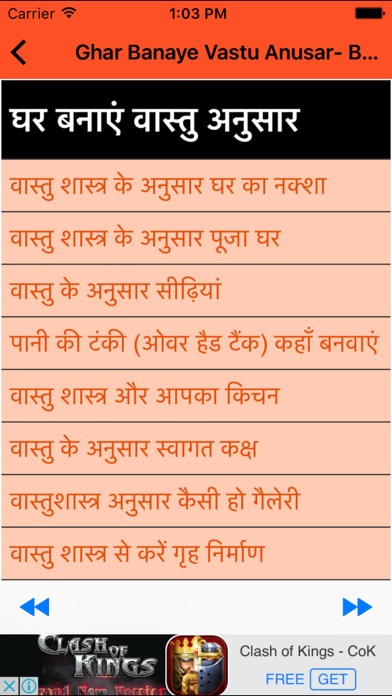 Carrier 1:03 PM
Ghar Banaye Vastu Anusar- B...
घर बनाएं वास्तु अनुसार
वास्तु शास्त्र के अनुसार घर का नक्शा
वास्तु शास्त्र के अनुसार पूजा घर
वास्तु के अनुसार सीढ़ियां
पानी की टंकी (ओवर हैड टैंक) कहाँ बनवाएं
वास्तु शास्त्र और आपका किचन
वास्तु के अनुसार स्वागत कक्ष
वास्तुशास्त्र अनुसार कैसी हो गैलेरी
वास्तु शास्त्र से करें गृह निर्माण
CLASH OF KINGS
Brand New Version
Clash of Kings - CoK
FREE GET